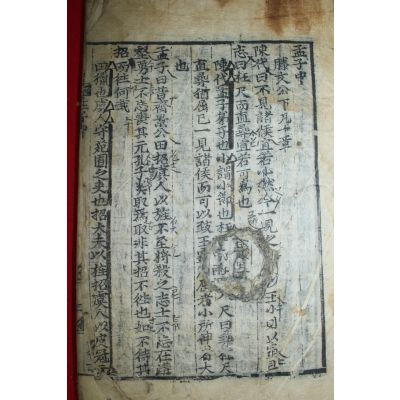 孟子中
滕文公下凡十章
陳代曰不見諸侯宜若小然今一見之 王小則以霸且
志曰枉尺而直尋宜若可爲也
陳代孟子弟子也小謂小節也枉 尺曰尋枉尺
直尋猶屈己一見諸侯而可以致王霸 屈者小所伸者大
也
孟子曰昔齊景公田招虞人以旌不至將殺之志士不忘在溝
壑勇士不忘喪其元孔子奚取焉取非其招不往也如不待其
招而往何哉
田獵也虞人守苑囿之吏也招大夫以旌招虞人以皮冠